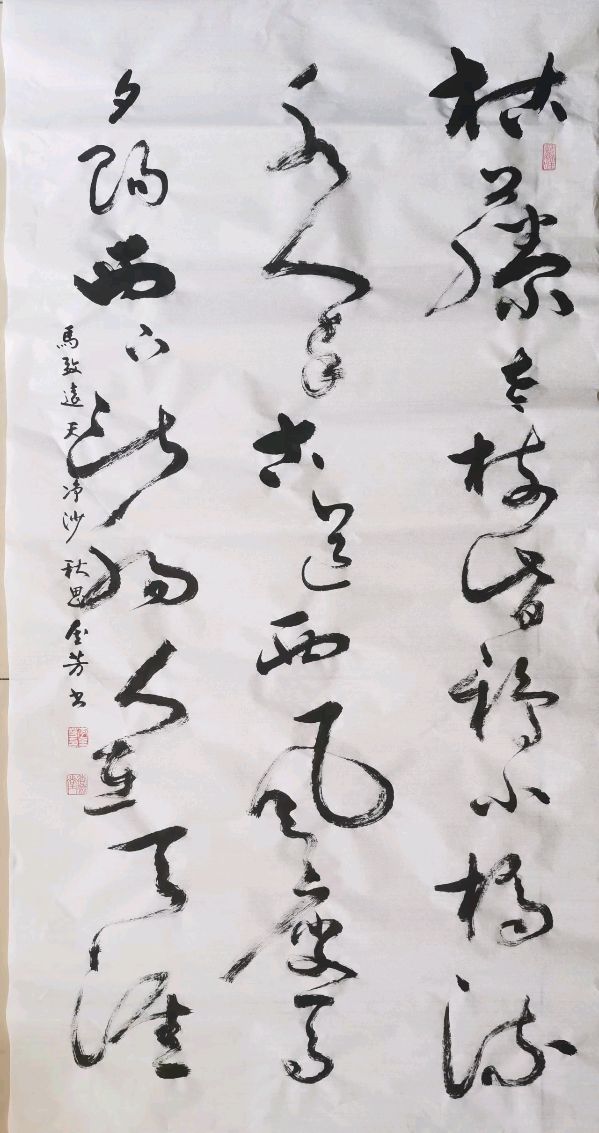 枯藤老树昏鸦小橋流
水人家古道西风瘦馬
夕陽西下断腸人在天涯
馬致遠天净沙 秋思 金芳书